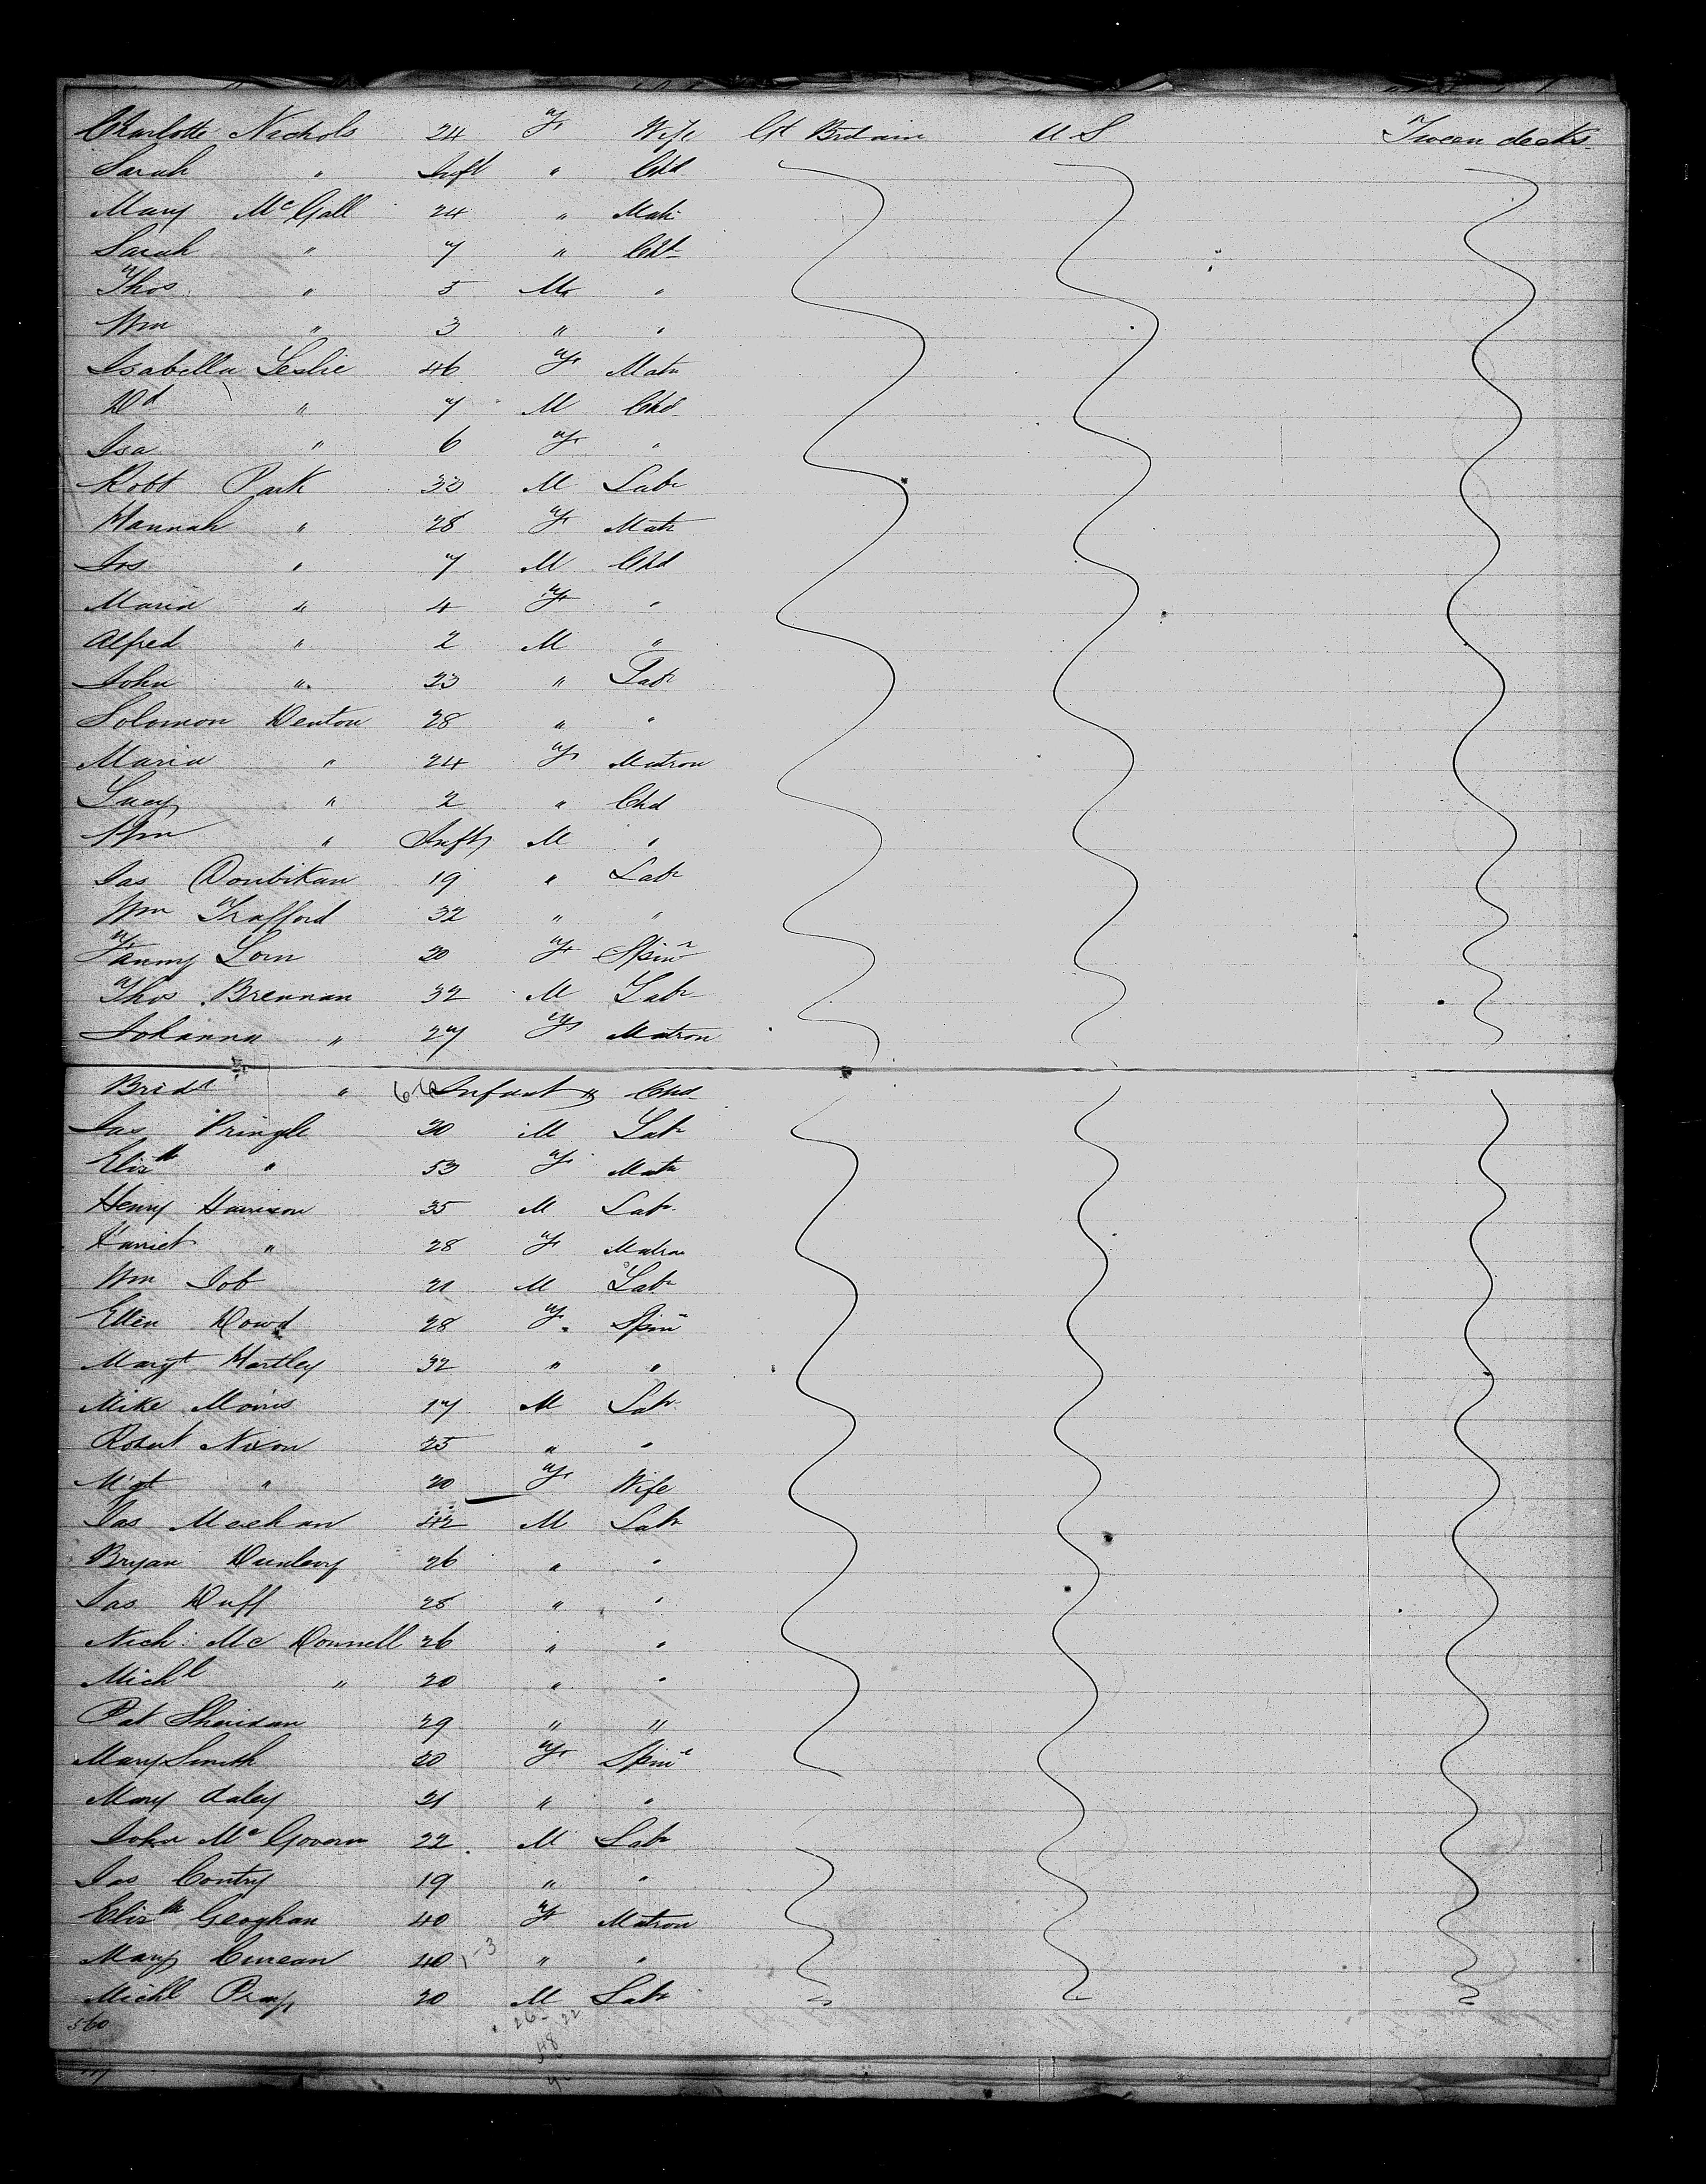 Charlotte Nichols 24 F Wife Gt Britain U S Tween decks
Sarah " Inft " Chd
Mary McGall 24 " Matr
Sarah " 7 " Chd
Thos " 5 M "
Wm " 3 " "
Isabella Leslie 46 F Matn
Dd " 7 M Chd
Isa " 6 F "
Robt Park 33 M Labr
Hannah " 28 F Matr
Jos " 7 M Chd
Maria " 4 F "
Alfred " 2 M "
John " 23 " Labr
Solomon Denton 28 " "
Maria " 24 F Matron
Lucy " 2 " Chd
Wm " Inft M "
Jas 19 " Labr
Wm Trafford 32 " "
Fanny Lorn 20 F Spinr
Thos Brennan 32 M Labr
Johanna " 27 F Matron
Bridt " Infant " Chd
Jas Pringle 20 M Labr
Elizth " 53 F Matn
Henry Harrison 35 M Labr
Harriet " 28 F Matron
Wm Job 21 M Labr
Ellen Dowd 28 F Spinr
Margt Hartley 32 " "
Mike Morris 17 M Labr
Robert Nixon 25 " "
Mgt " 20 F Wife
Jas Meehan 42 M Labr
Bryan Dunlevy 26 " "
Jas Duff 28 " "
Nich: Mc Donnell 26 " "
Michl " 20 " "
Pat Sheridan 29 " "
Mary Smith 20 F Spinr
Mary Daley 21 " "
John McGovern 22 M Labr
Jas Contry 19 " "
Elizth Geoghan 40 F Matron
Mary 40 " "
Michl 20 M Labr
560 26 22
48